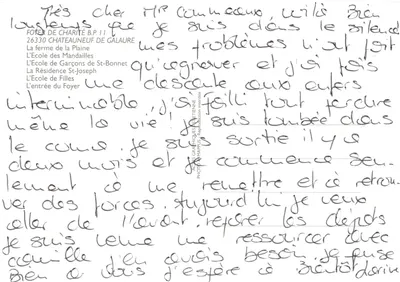 Très cher Mr Commeaux, voilà bien
longtemps que je suis dans le silence
FOYER DE CHARITÉ B.P. 11
26330 CHATEAUNEUF DE GALAURE
La ferme de la Plaine
L'Ecole des Mandailles
L'Ecole de Garçons de St-Bonnet
La Résidence St-Joseph
L'Ecole de Filles
L'entrée du Foyer
mes problèmes n'ont fait
qu'empirer et j'ai fais
une descente aux enfers
interminable, j'ai failli tout perdre
même la vie! je suis tombée dans
le coma. je suis sortie il y a
deux mois et je commence seu-
lement à me remettre et à retrou-
ver des forces. Aujourd'hui je veux
aller de l'avant, réparer les dégats
je suis venue me ressourcer avec
camille j'en avais besoin. je pense
bien à vous j'espère à bientôt